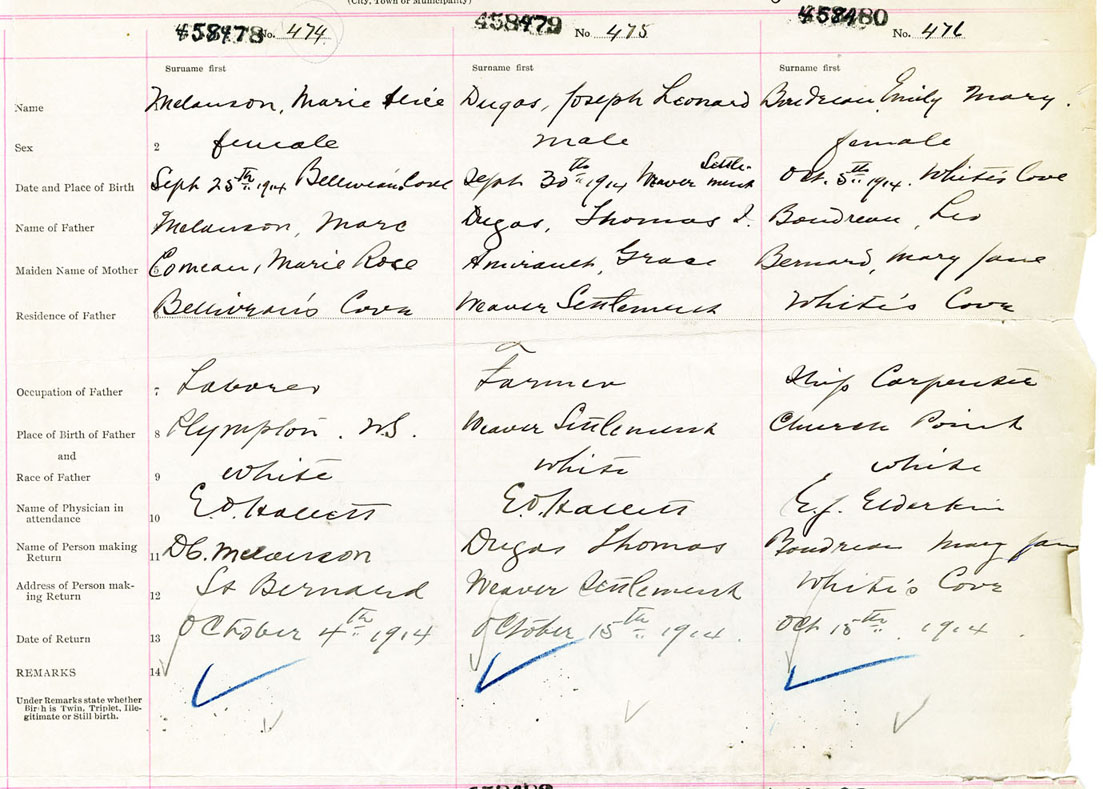 (City, Town or Municipality)
458478 No. 474 458479 No. 475 458480 No. 476
Surname first Surname first Surname first
Name Melanson, Marie Alice Dugas, Joseph Leonard Boudreau, Emily Mary.
Sex 2 female male female
Settle-
Date and Place of Birth Sept 25th 1914 Belliveau Cove Sept 30th 1914 Weaver ment Oct. 5th 1914. White's Cove
Name of Father Melanson, Marc Dugas, Thomas Boudreau, Leo
Maiden Name of Mother 5 Comeau, Marie Rose Amirault, Grace Bernard, Mary Jane
Residence of Father 6 Belliveau's Cove Weaver Settlement White's Cove
Occupation of Father 7 Laborer Farmer Ship Carpenter
Place of Birth of Father 8 Plympton. N.S. Weaver Settlement Church Point
and
Race of Father 9 white white white
Name of Physician in
attendance 10 E.O. Hallett E.O. Hallett E.J. Elderkin
Name of Person making
Return 11 Melanson Dugas Thomas Boudreau Mary Jane
Address of Person mak-
ing Return 12 St Bernard Weaver Settlement White's Cove
Date of Return 13 October 4th 1914 October 15th 1914. Oct 15th 1914.
REMARKS 14
Under Remarks state whether
Birth is Twin, Triplet, Ille-
gitimate or Still birth.